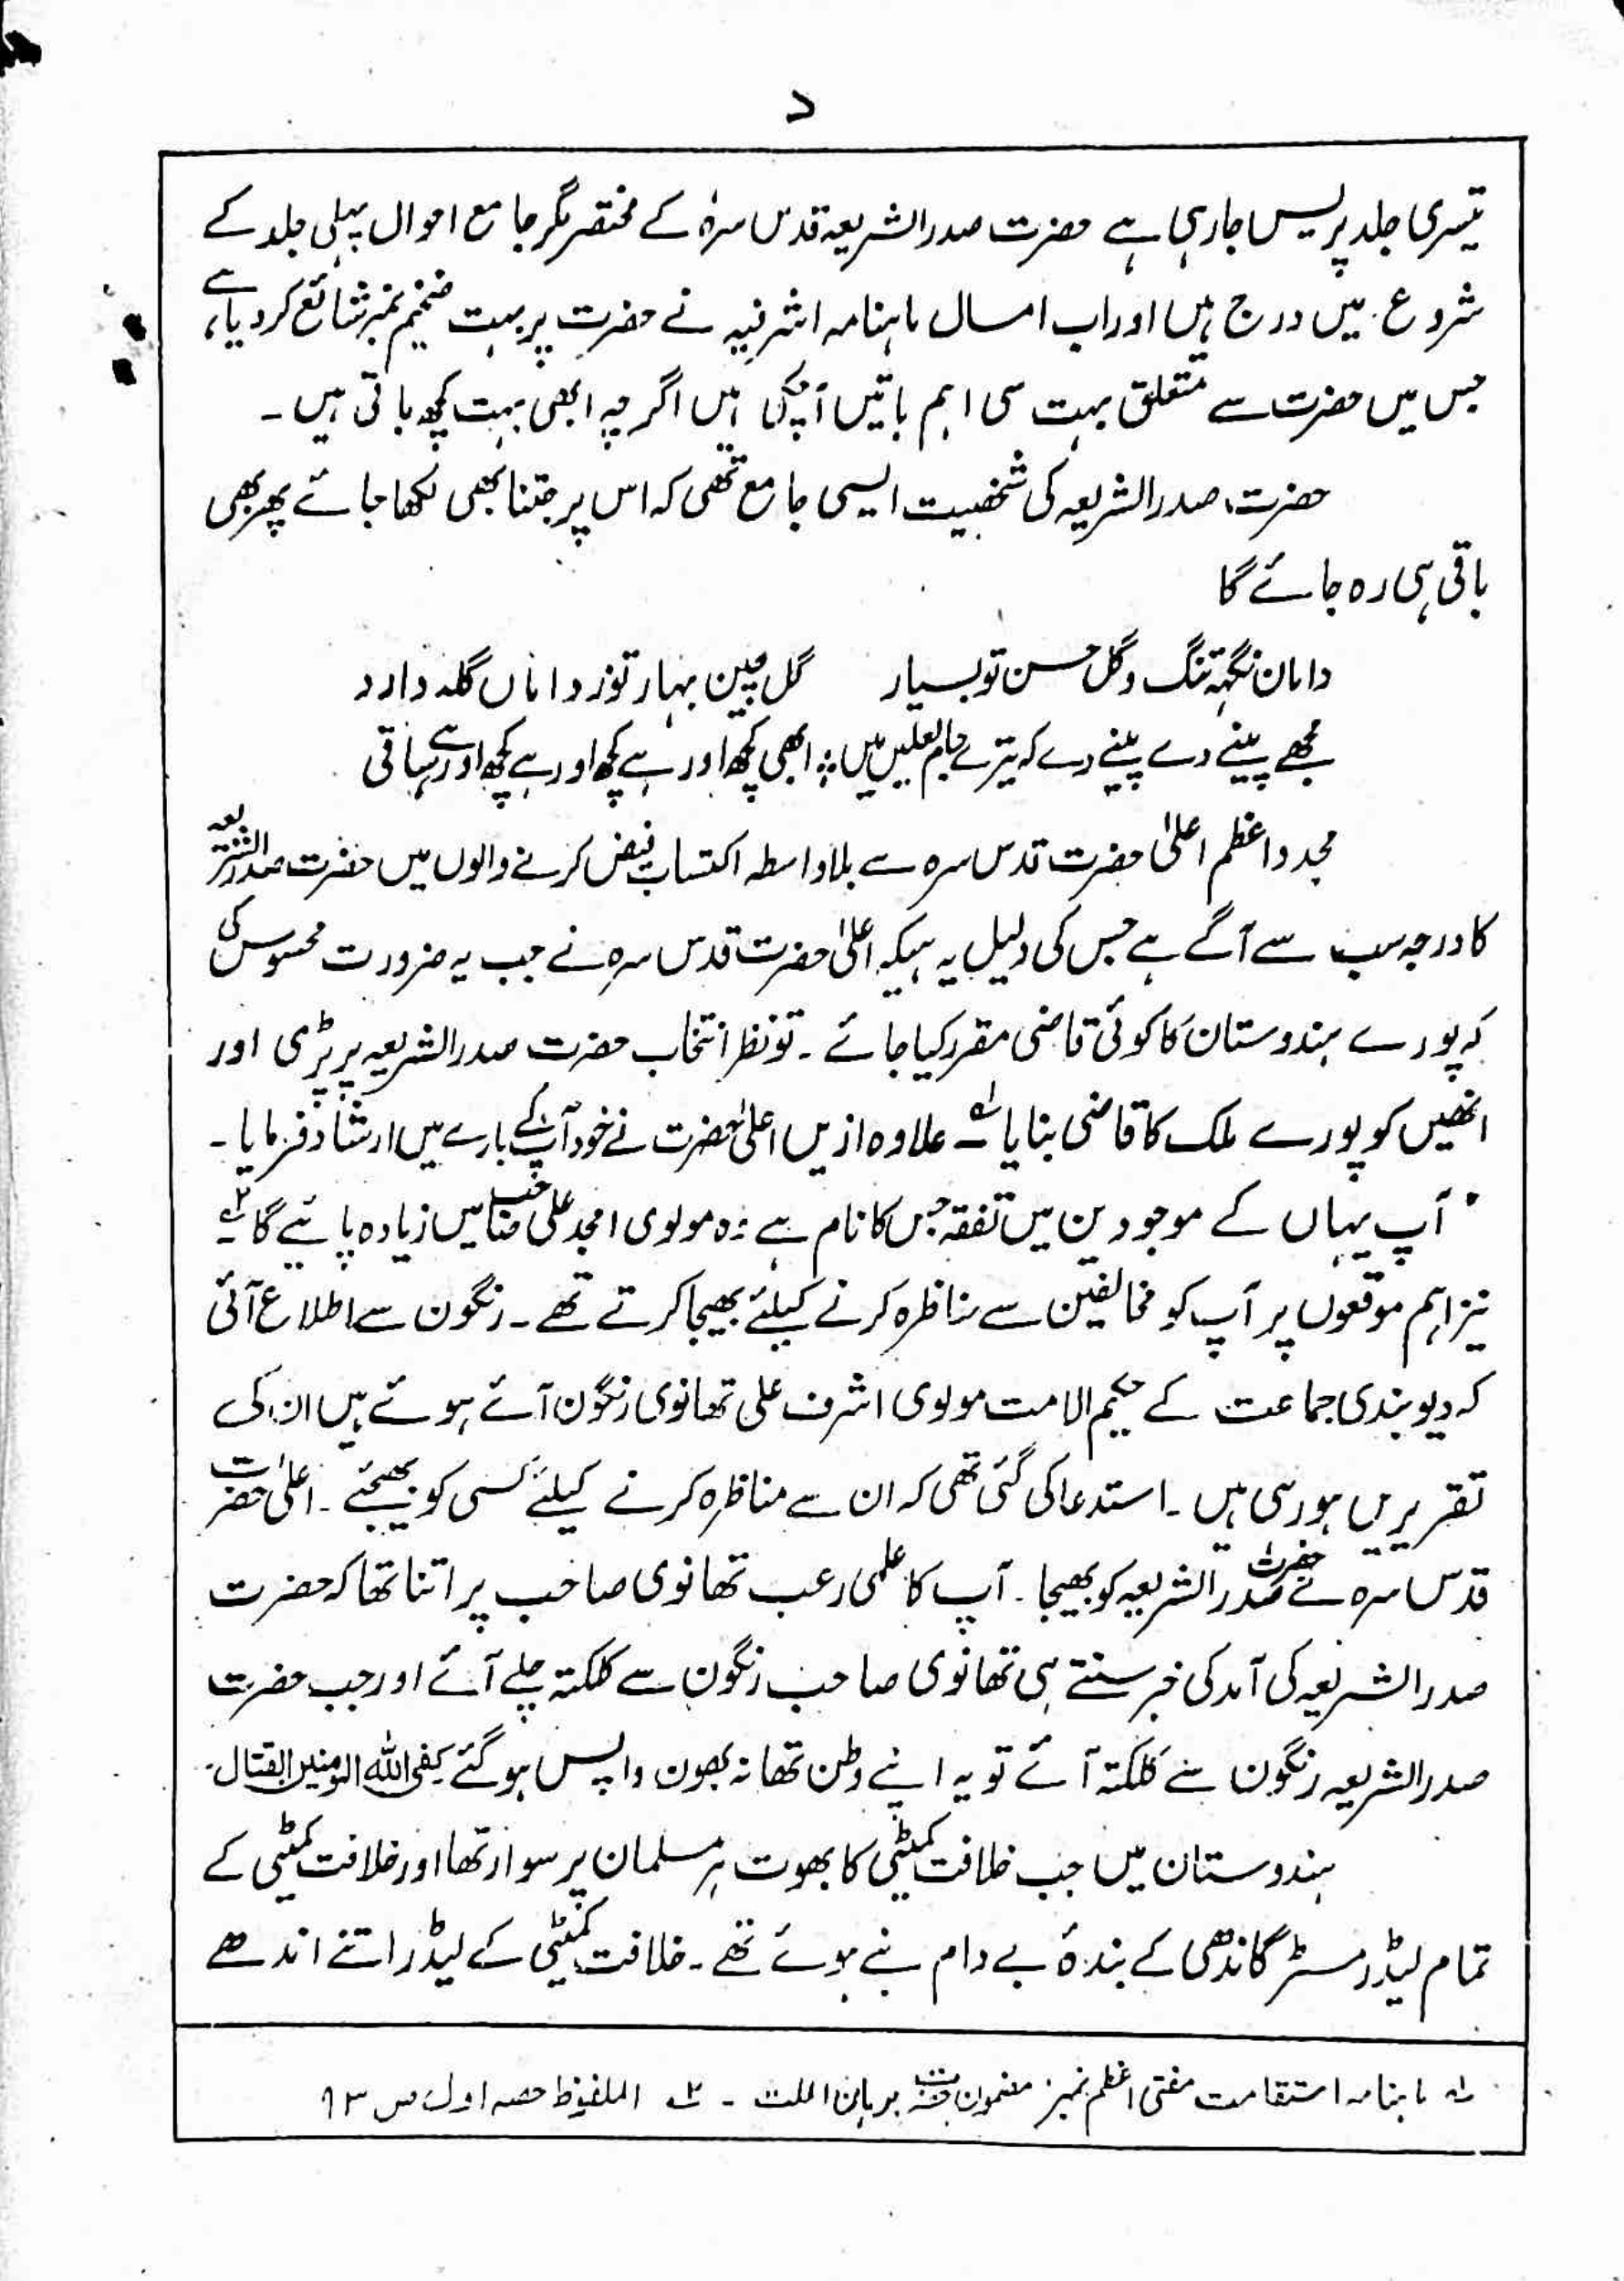 د
تیسری جلد پریس جارہی ہے حضرت صدرالشریعہ قدس سرہٗ کے مختصر مگر جامع احوال پہلی جلد کے
شروع میں درج ہیں اور اب امسال ماہنامہ اشرفیہ نے حضرت پر بہت ضخیم نمبر شائع کردیا ہے،
جس میں حضرت سے متعلق بہت سی اہم باتیں آچکی ہیں اگرچہ ابھی بہت کچھ باقی ہیں ۔
حضرت صدرالشریعہ کی شخصیت ایسی جامع تھی کہ اس پر جتنا بھی لکھا جائے پھر بھی
باقی ہی رہ جائے گا
دامان نگہہ تنگ و گل حسن تو بسیار گل چین بہار تو زداماں گلہ دارد
مجھے پینے دے پینے دے کہ تیرے جام لعلیں میں ؛ ابھی کچھ اور ہے کچھ اور ہے کچھ اور ہے ساقی
مجدد اعظم اعلیٰ حضرت قدس سرہ سے بلاواسطہ اکتساب فیض کرنے والوں میں حضرت صدرالشریعہ
کا درجہ سب سے آگے ہے جس کی دلیل یہ ہیکہ اعلیٰ حضرت قدس سرہ نے جب یہ ضرورت محسوس کی
کہ پورے ہندوستان کا کوئی قاضی مقرر کیا جائے ۔ تو نظر انتخاب حضرت صدرالشریعہ پر پڑی اور
انھیں کو پورے ملک کا قاضی بنایا ۱؎ ۔ علاوہ ازیں اعلیٰ حضرت نے خود آپ کے بارے میں ارشاد فرمایا ۔
” آپ یہاں کے موجودین میں تفقہ جس کا نام ہے وہ مولوی امجد علی صاحب میں زیادہ پائیے گا ۲؎
نیز اہم موقعوں پر آپ کو مخالفین سے مناظرہ کرنے کیلئے بھیجا کرتے تھے ۔ رنگون سے اطلاع آئی
کہ دیوبندی جماعت کے حکیم الامت مولوی اشرف علی تھانوی رنگون آئے ہوئے ہیں ان کی
تقریریں ہورہی ہیں ۔ استدعا کی گئی تھی کہ ان سے مناظرہ کرنے کیلئے کسی کو بھیجئے ۔ اعلیٰ حضرت
قدس سرہ نے حضرت صدرالشریعہ کو بھیجا ۔ آپ کا علمی رعب تھانوی صاحب پر اتنا تھا کہ حضرت
صدرالشریعہ کی آمد کی خبر سنتے ہی تھانوی صاحب رنگون سے کلکتہ چلے آئے اور جب حضرت
صدرالشریعہ رنگون سے کلکتہ آئے تو یہ اپنے وطن تھانہ بھون واپس ہوگئے کفی اللہ المومنین القتال ۔
ہندوستان میں جب خلافت کمیٹی کا بھوت ہر مسلمان پر سوار تھا اور خلافت کمیٹی کے
تمام لیڈر مسٹر گاندھی کے بندۂ بے دام بنے ہوئے تھے ۔ خلافت کمیٹی کے لیڈر اتنے اندھے
۱؎ ماہنامہ استقامت مفتی اعظم نمبر مضمون حضرت برہان الملت ۔ ۲؎ الملفوظ حصہ اول ص ۹۳